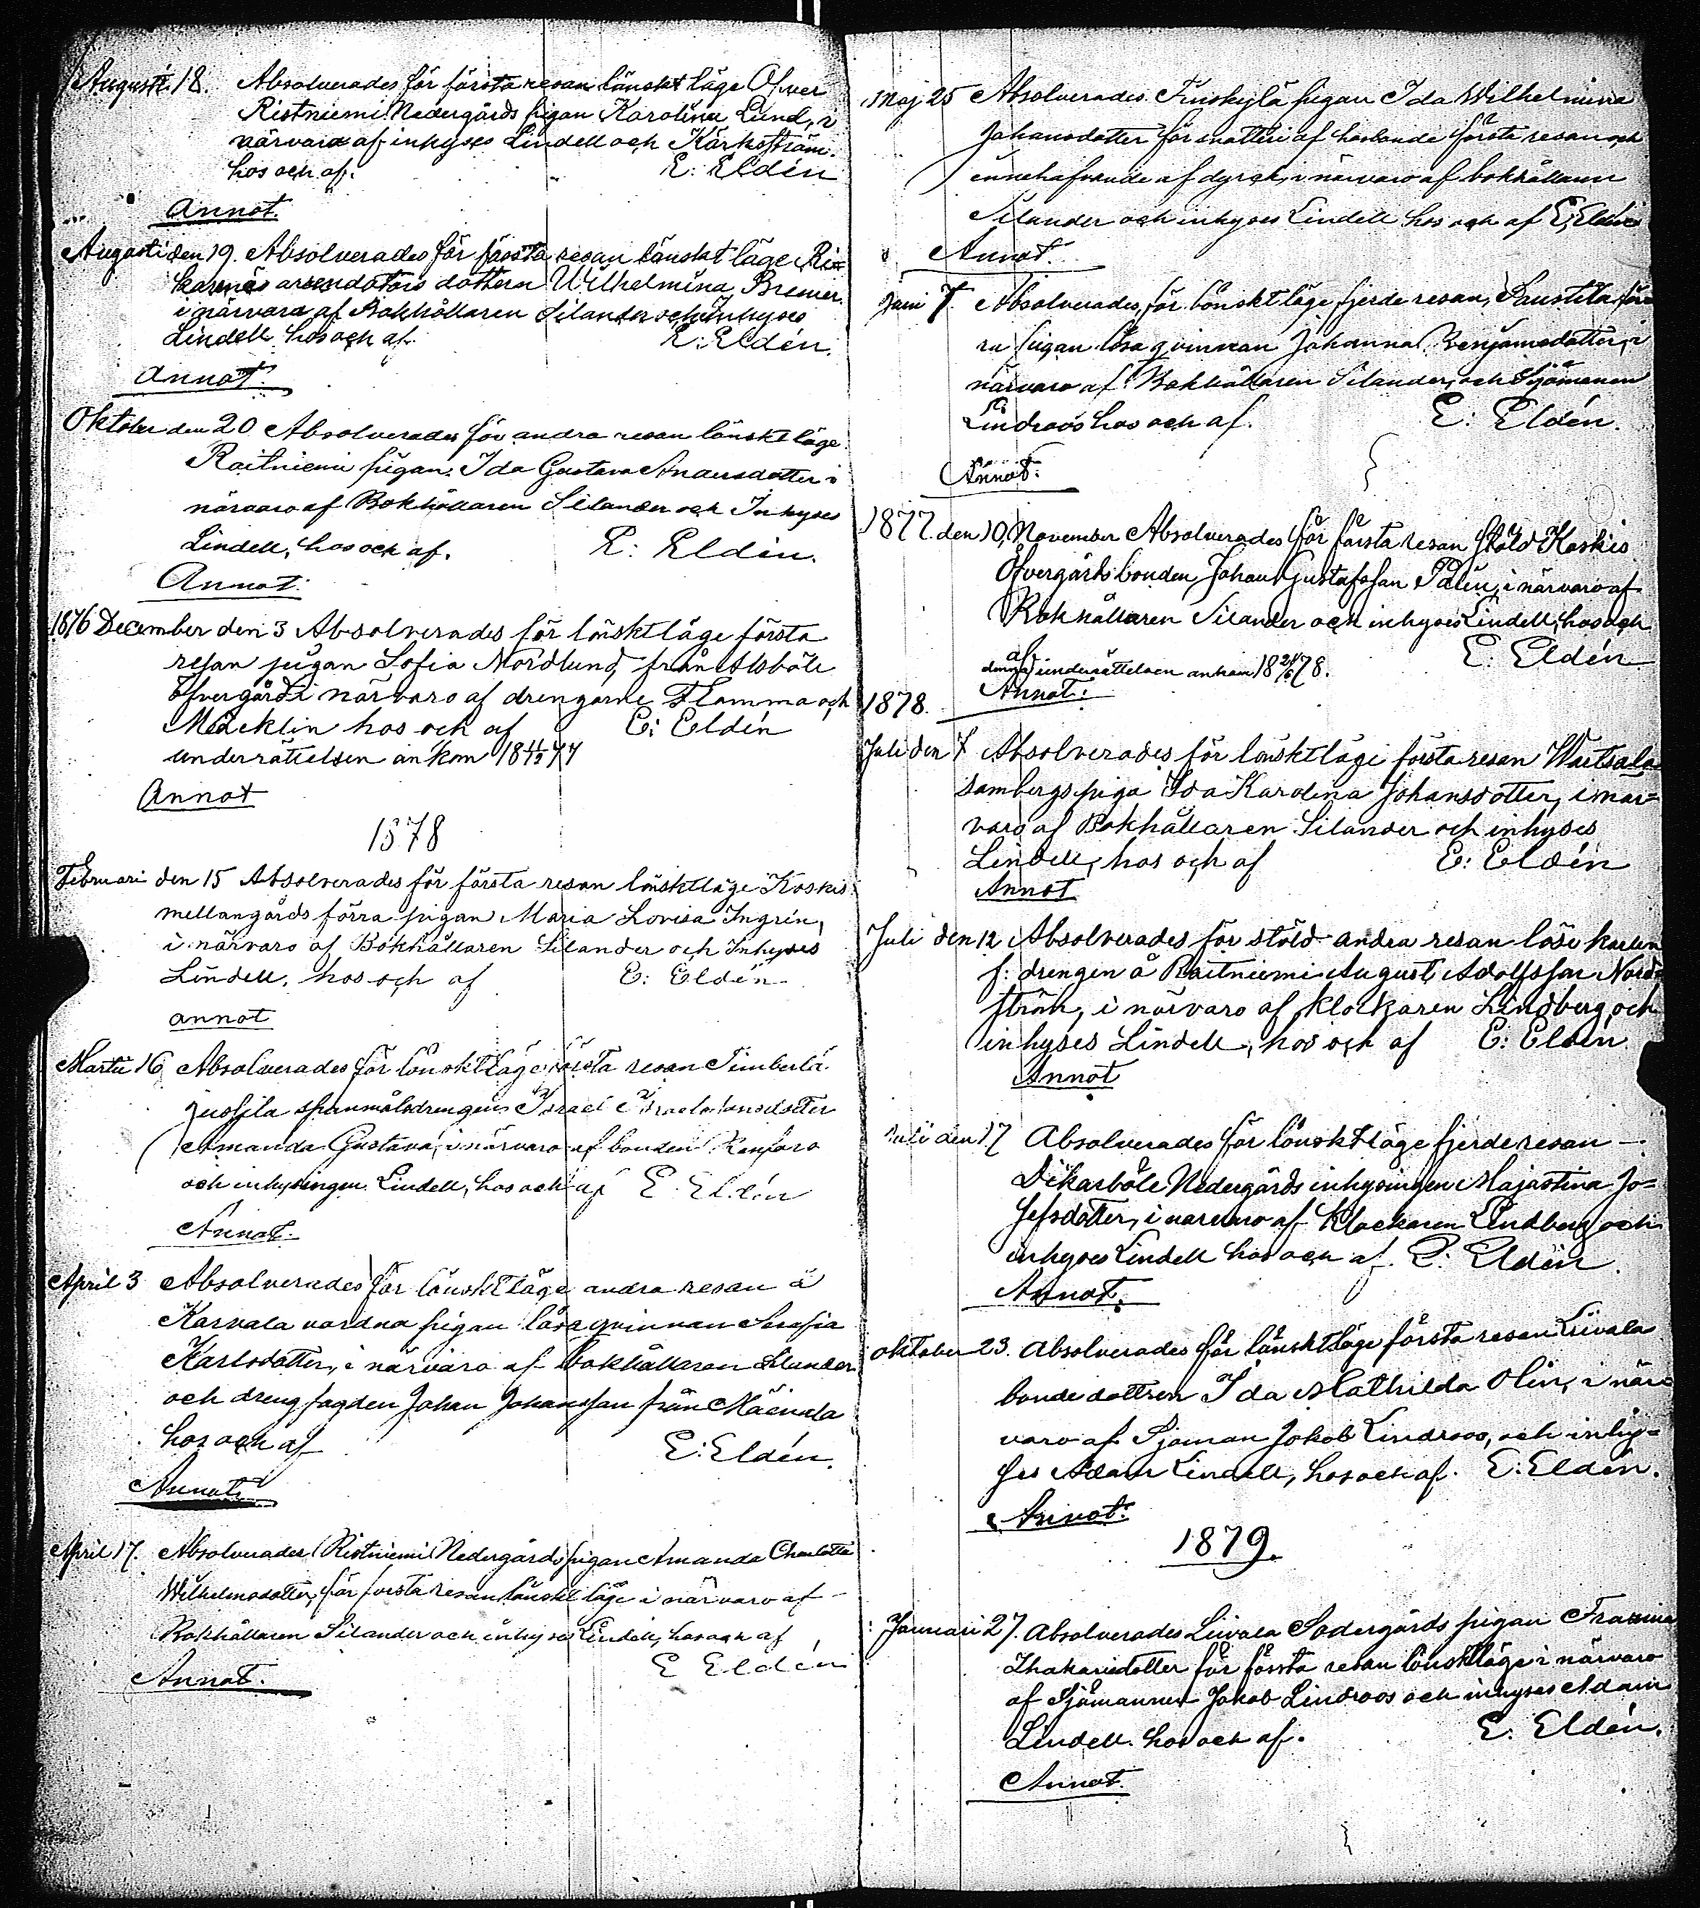 Augusti 18. Absolverades för första resan lönskt läge Ofver
Ristniemi Nedergårds pigan Karolina Lund, i
närvaro af inhyses Lindell och Kärkström.
hos och af. E: Eldén
Annot.
Augusti den 19. Absolverades för första resan lönskt läge Ri=
arrendators dottern Wilhelmina Bremer.
i närvaro af Bokhållaren Silander och Inhyses
Lindell, hos och af. E: Eldén.
Annot.
Oktober den 20 Absolverades för andra resan lönskt läge
Raitniemi pigan Ida Gustava Andersdotter i
närvaro af Bokhållaren Silander och Inhyses
Lindell, hos och af. E: Eldén.
Annot:
1876 December den 3 Absolverades för lönsktläge första
resan pigan Sofia Nordlund, från Alsböle
Öfvergård i närvaro af drengarne Flamma och
Mäcklin hos och af E: Eldén
underrättelsen ankom 18 77
Annot
1878
Februari den 15 Absolverades för första resan lönsktläge Koskis
mellangårds förra pigan Maria Lovisa Ingrén,
i närvaro af Bokhållaren Silander och Inhyses
Lindell, hos och af E: Eldén
annot
Martii 16 Absolverades för lönsktläge första resan Timberlä
spanmålsdrengens Israel
Amanda Gustava, i närvaro af bonden
och inhysingen Lindell, hos och af E. Eldén
Annot.
April 3 Absolverades för lönsktläge andra resan å
Karvala vordna pigan lösa qvinnan Serafia
Karlsdotter, i närvaro af bokhållaren Silander
och dreng Johan Johansson från
hos och af E: Eldén.
Annot:
April 17. Absolverades Ristniemi Nedergårds pigan Amanda Charlotta
Wilhelmsdotter, för första resan lönskt läge i närvaro af
Bokhållaren Silander och inhyses Lindell, hos och af
E Eldén
Annot.
Maj 25 Absolverades Finskylä pigan Ida Wilhelmina
Johansdotter för snatteri af första resan och
innehafvande af dyrck, i närvaro af bokhållaren
Silander och inhyses Lindell hos och af E: Eldén
Annot.
Juni 7. Absolverades, för lönskt läge fjerde resan, för
ra pigan lösa qvinnan Johanna Benjamsdotter, i
närvaro af Bokhållaren Silander, och Sjömannen
Lindroos hos och af. E: Eldén.
Annot:
1877. den 10 November Absolverades för första resan stöld Koskis
Öfvergårds bonden Johan Gustafsson i närvaro af
Bokhållaren Silander och inhyses Lindell, hos och
af E: Eldén
underrättelsen ankom 18 78.
Annot:
1878.
Juli den 7 Absolverades för lönsktläge första resan Wartsala
Sambergs piga Ida Karolina Johansdotter, i när=
varo af Bokhållaren Silander och inhyses
Lindell, hos och af E: Eldén
Annot
Juli den 12 Absolverades för stöld andra resan löse karlen
f: drengen å Raitniemi August Adolfsson Nord=
ström, i närvaro af klockaren Lindberg, och
inhyses Lindell, hos och af E: Eldén.
Annot
Juli den 17 Absolverades för lönsktläge fjerde resan
Dikarböle Nedergårds inhysingen Majastina Jo=
sefsdotter, i närvaro af Klockaren Lindberg och
inhyses Lindell hos och af. E: Eldén.
Annot.
Oktober 23. Absolverades för lönsktläge första resan Liivala
bondedottren Ida Mathilda Olin, i när=
varo af Sjöman Jakob Lindroos, och inhy=
ses Adam Lindell, hos och af. E: Eldén.
Annot:
1879.
Januari 27. Absolverades Liivala Södergårds pigan Fransina
Zhakariedotter för första resan lönsktläge i närvaro
af Sjömannen Jakob Lindroos och inhyses Adam
Lindell hos och af. E. Eldén.
Annot.